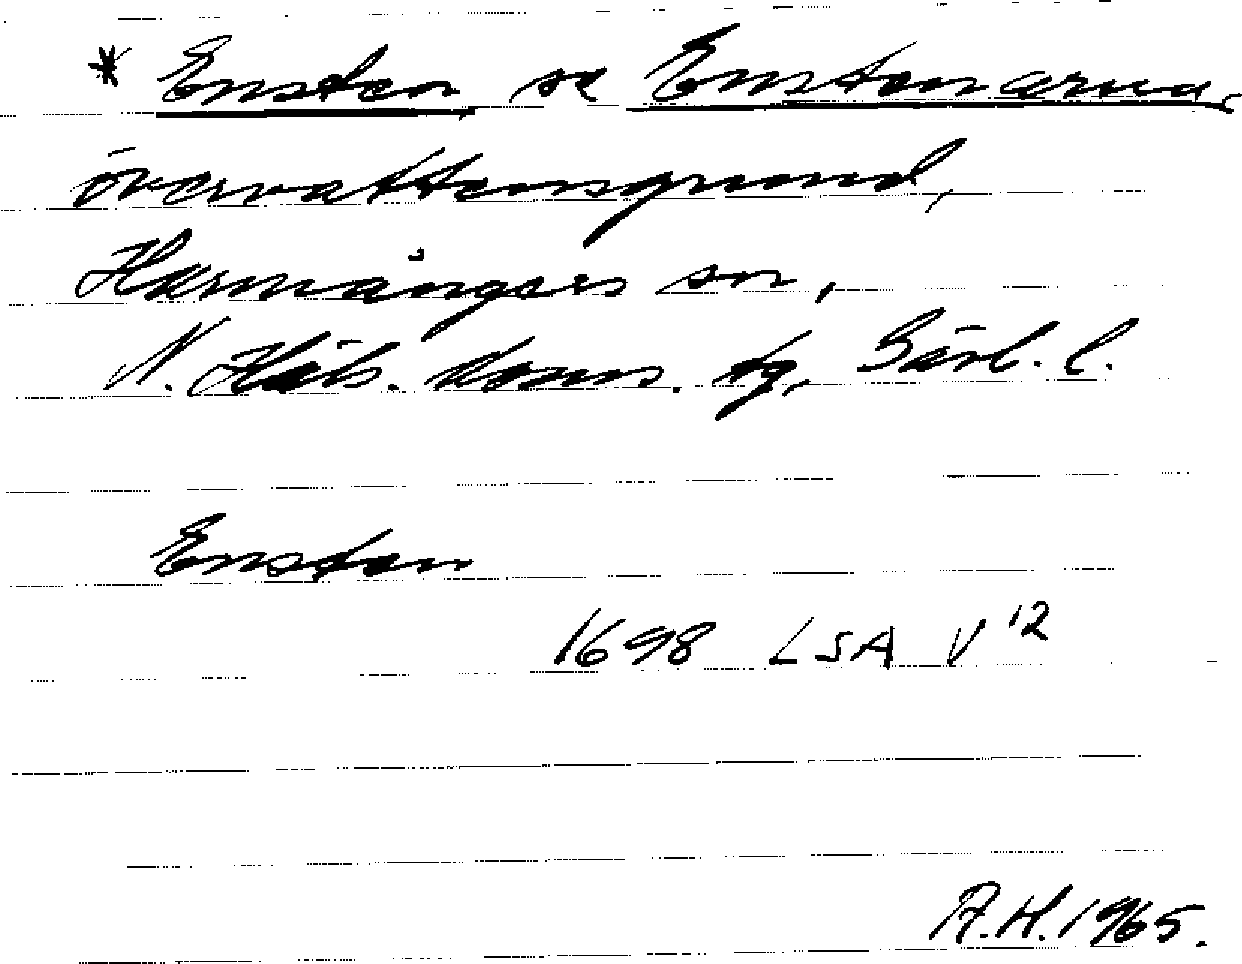 * Ensten, se Enstenarna,
övervattensgrund,
Harmångers sn,
N. Häls. doms. tg, Gävl. l.
Ensten
1698 LSA V 12
A.H. 1965.